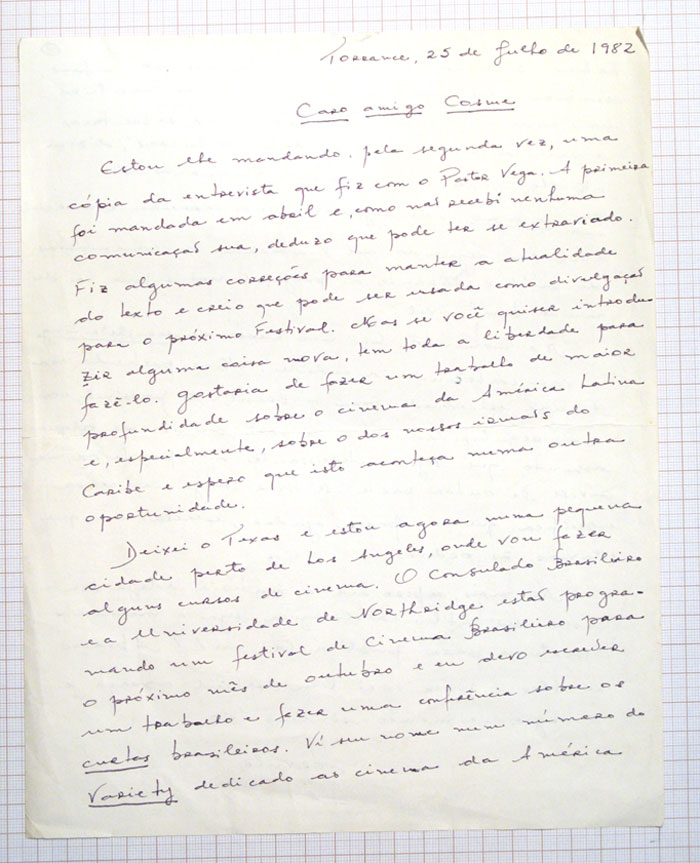 Torrance, 25 de Julho de 1982
Caro amigo Cosme
Estou lhe mandando, pela segunda vez, uma
cópia da entrevista que fiz com o Pastor Vega. A primeira
foi mandada em abril e, como não recebi nenhuma
comunicação sua, deduzo que pode ter se extraviado.
Fiz algumas correções para manter a atualidade
do texto e creio que pode ser usada como divulgação
para o próximo Festival. Mas se você quiser introdu-
zir alguma coisa nova, tem toda a liberdade para
fazê-lo. Gostaria de fazer um trabalho de maior
profundidade sobre o cinema da América Latina
e, especialmente, sobre o dos nossos irmãos do
Caribe e espero que isto aconteça numa outra
oportunidade.
Deixei o Texas e estou agora numa pequena
cidade perto de Los Angeles, onde vou fazer
alguns cursos de cinema. O Consulado Brasileiro
e a Universidade de Northridge estão progra-
mando um festival de Cinema Brasileiro para
o próximo mês de outubro e eu devo escrever
um trabalho e fazer uma conferência sobre os
curtas brasileiros. Vi seu nome num número do
Variety dedicado ao cinema da América